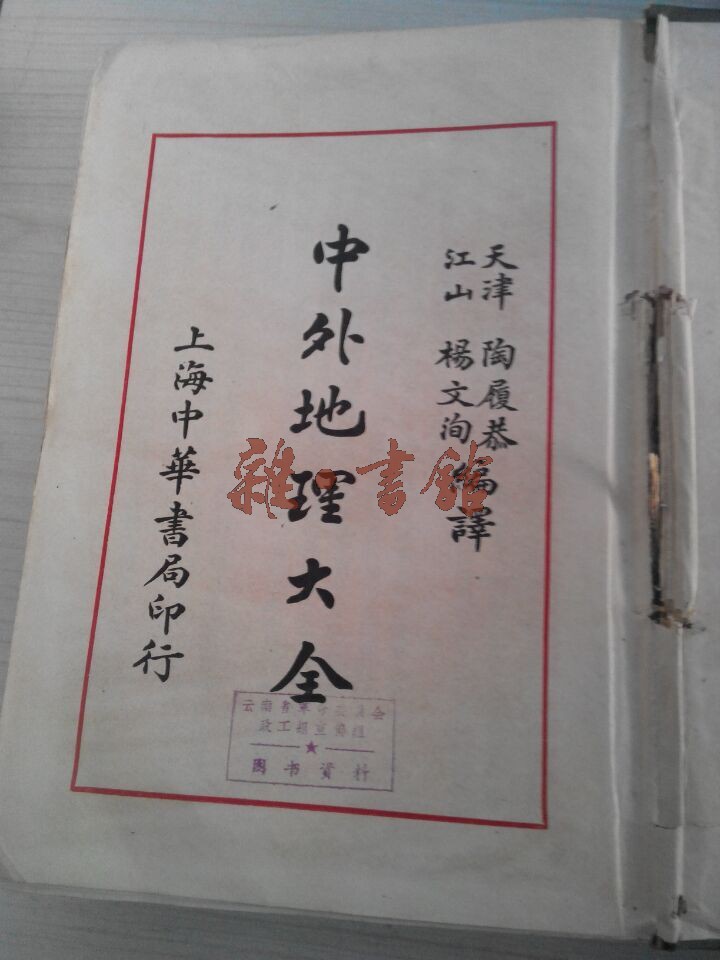 天津 陶履恭
江山 楊文洵
編譯
中外地理大全
上海中華書局印行
雜·書館
云南省革命委员会
政工组宣传组
★
图书资料